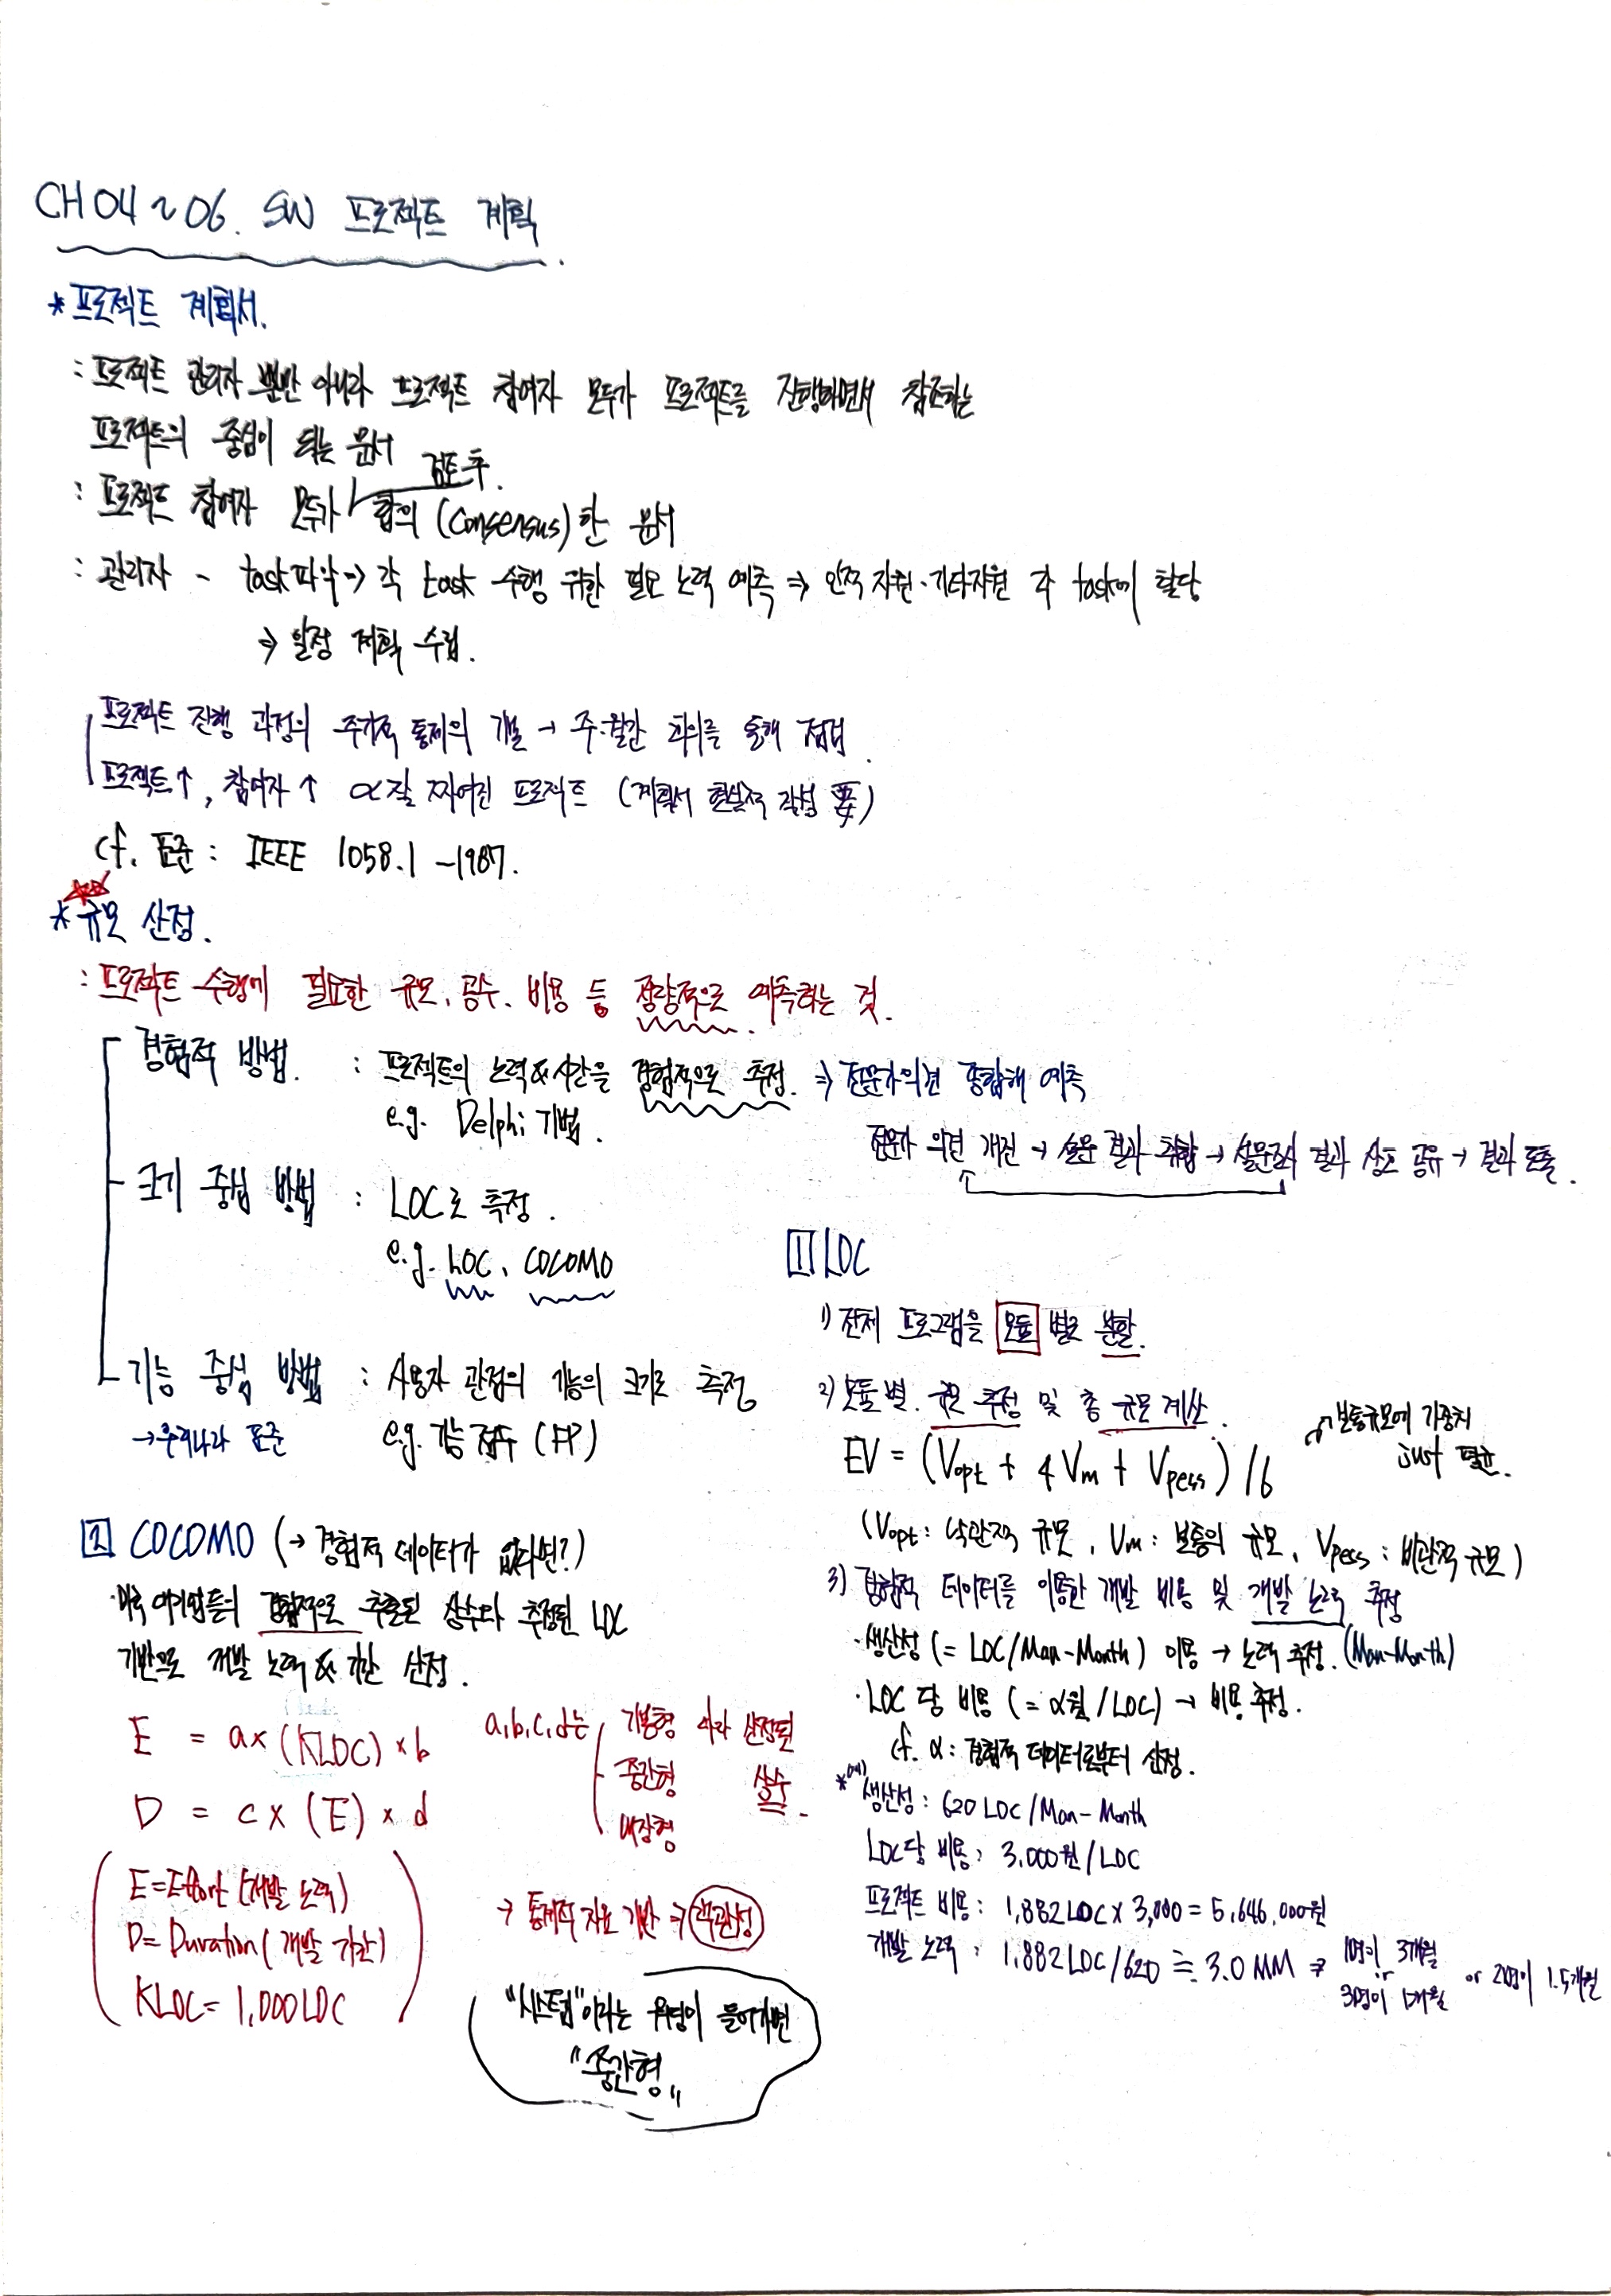 CH04~06. SW 프로젝트 계획
*프로젝트 계획서.
: 프로젝트 관리자 뿐만 아니라 프로젝트 참여자 모두가 프로젝트를 진행하면서 참조하는
프로젝트의 중심이 되는 문서
검토 후.
: 프로젝트 참여자 모두가 합의 (Consensus)한 문서
: 관리자 - task파악 → 각 task 수행 위한 필요 노력 예측 ⇒ 인적 자원·기타자원 각 task에 할당
⇒ 일정 계획 수립.
프로젝트 진행 과정의 주기적 통제의 개념 → 주·월간 회의를 통해 점검.
프로젝트↑, 참여자↑ ∝ 잘 짜여진 프로젝트 (계획서 현실적 작성 要)
cf. 표준: IEEE 1058.1 -1987.
*규모 산정.
: 프로젝트 수행에 필요한 규모, 공수, 비용 등 정량적으로 예측하는 것.
경험적 방법. : 프로젝트의 노력&시간을 경험적으로 추정. ⇒ 전문가의견 종합해 예측
e.g. Delphi 기법.
전문가 의견 개진 → 설문 결과 취합 → 설문조사 결과 상호 공유 → 결과 도출.
크기 중심 방법 : LOC로 측정.
e.g. LOC, COCOMO
기능 중심 방법 : 사용자 관점의 기능의 크기로 측정
→ 우리나라 표준 e.g. 기능 점수 (FP)
1 LOC
1) 전체 프로그램을 모듈 별로 분할.
2) 모듈 별 규모 추정 및 총 규모 계산.
EV = (Vopt + 4Vm + Vpess) / 6
보통규모에 가중치
just 평균.
(Vopt: 낙관적 규모, Vm: 보통의 규모, Vpess: 비관적 규모)
3) 경험적 데이터를 이용한 개발 비용 및 개발 노력 추정
·생산성 (= LOC/Man-Month) 이용 → 노력 추정. (Man-Month)
·LOC 당 비용 (= α원/LOC) → 비용 추정.
cf. α: 경험적 데이터로부터 산정.
*예)
생산성: 620 LOC/Man-Month
LOC당 비용: 3,000원/LOC
프로젝트 비용: 1,882 LOC x 3,000 = 5,646,000원
개발 노력: 1,882 LOC/620 ≒ 3.0 MM ⇒ 1명이 3개월
or
3명이 1개월 or 2명이 1.5개월
2 COCOMO (→ 경험적 데이터가 없다면?)
경험적으로 추출된 상수와 추정된 LOC
기반으로 개발 노력 & 기간 산정.
E = a x (KLOC) x b
D = c x (E) x d
a,b,c,d는 기본형 따라 산정된
중간형 상수.
내장형
E=Effort (개발 노력)
D= Duration (개발 기간)
KLOC= 1,000LOC
→ 통계적 자료 기반 ⇒ 객관성
"시스템"이라는 워딩이 들어가면
"중간형"